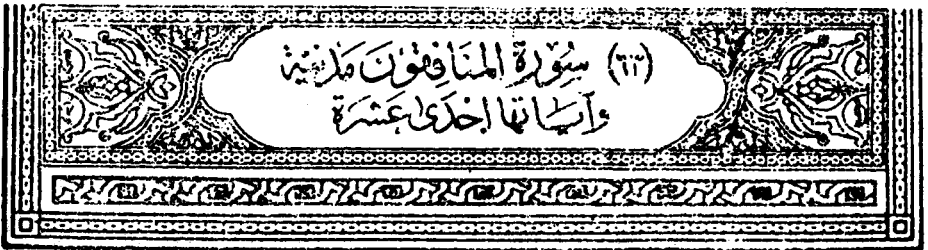 (٦٣) سُوۡرَةِ المنَافِقوُنَ مَدَنيَّة
وَآيَاتهَا اِحۡدَىٰ عَشرَة